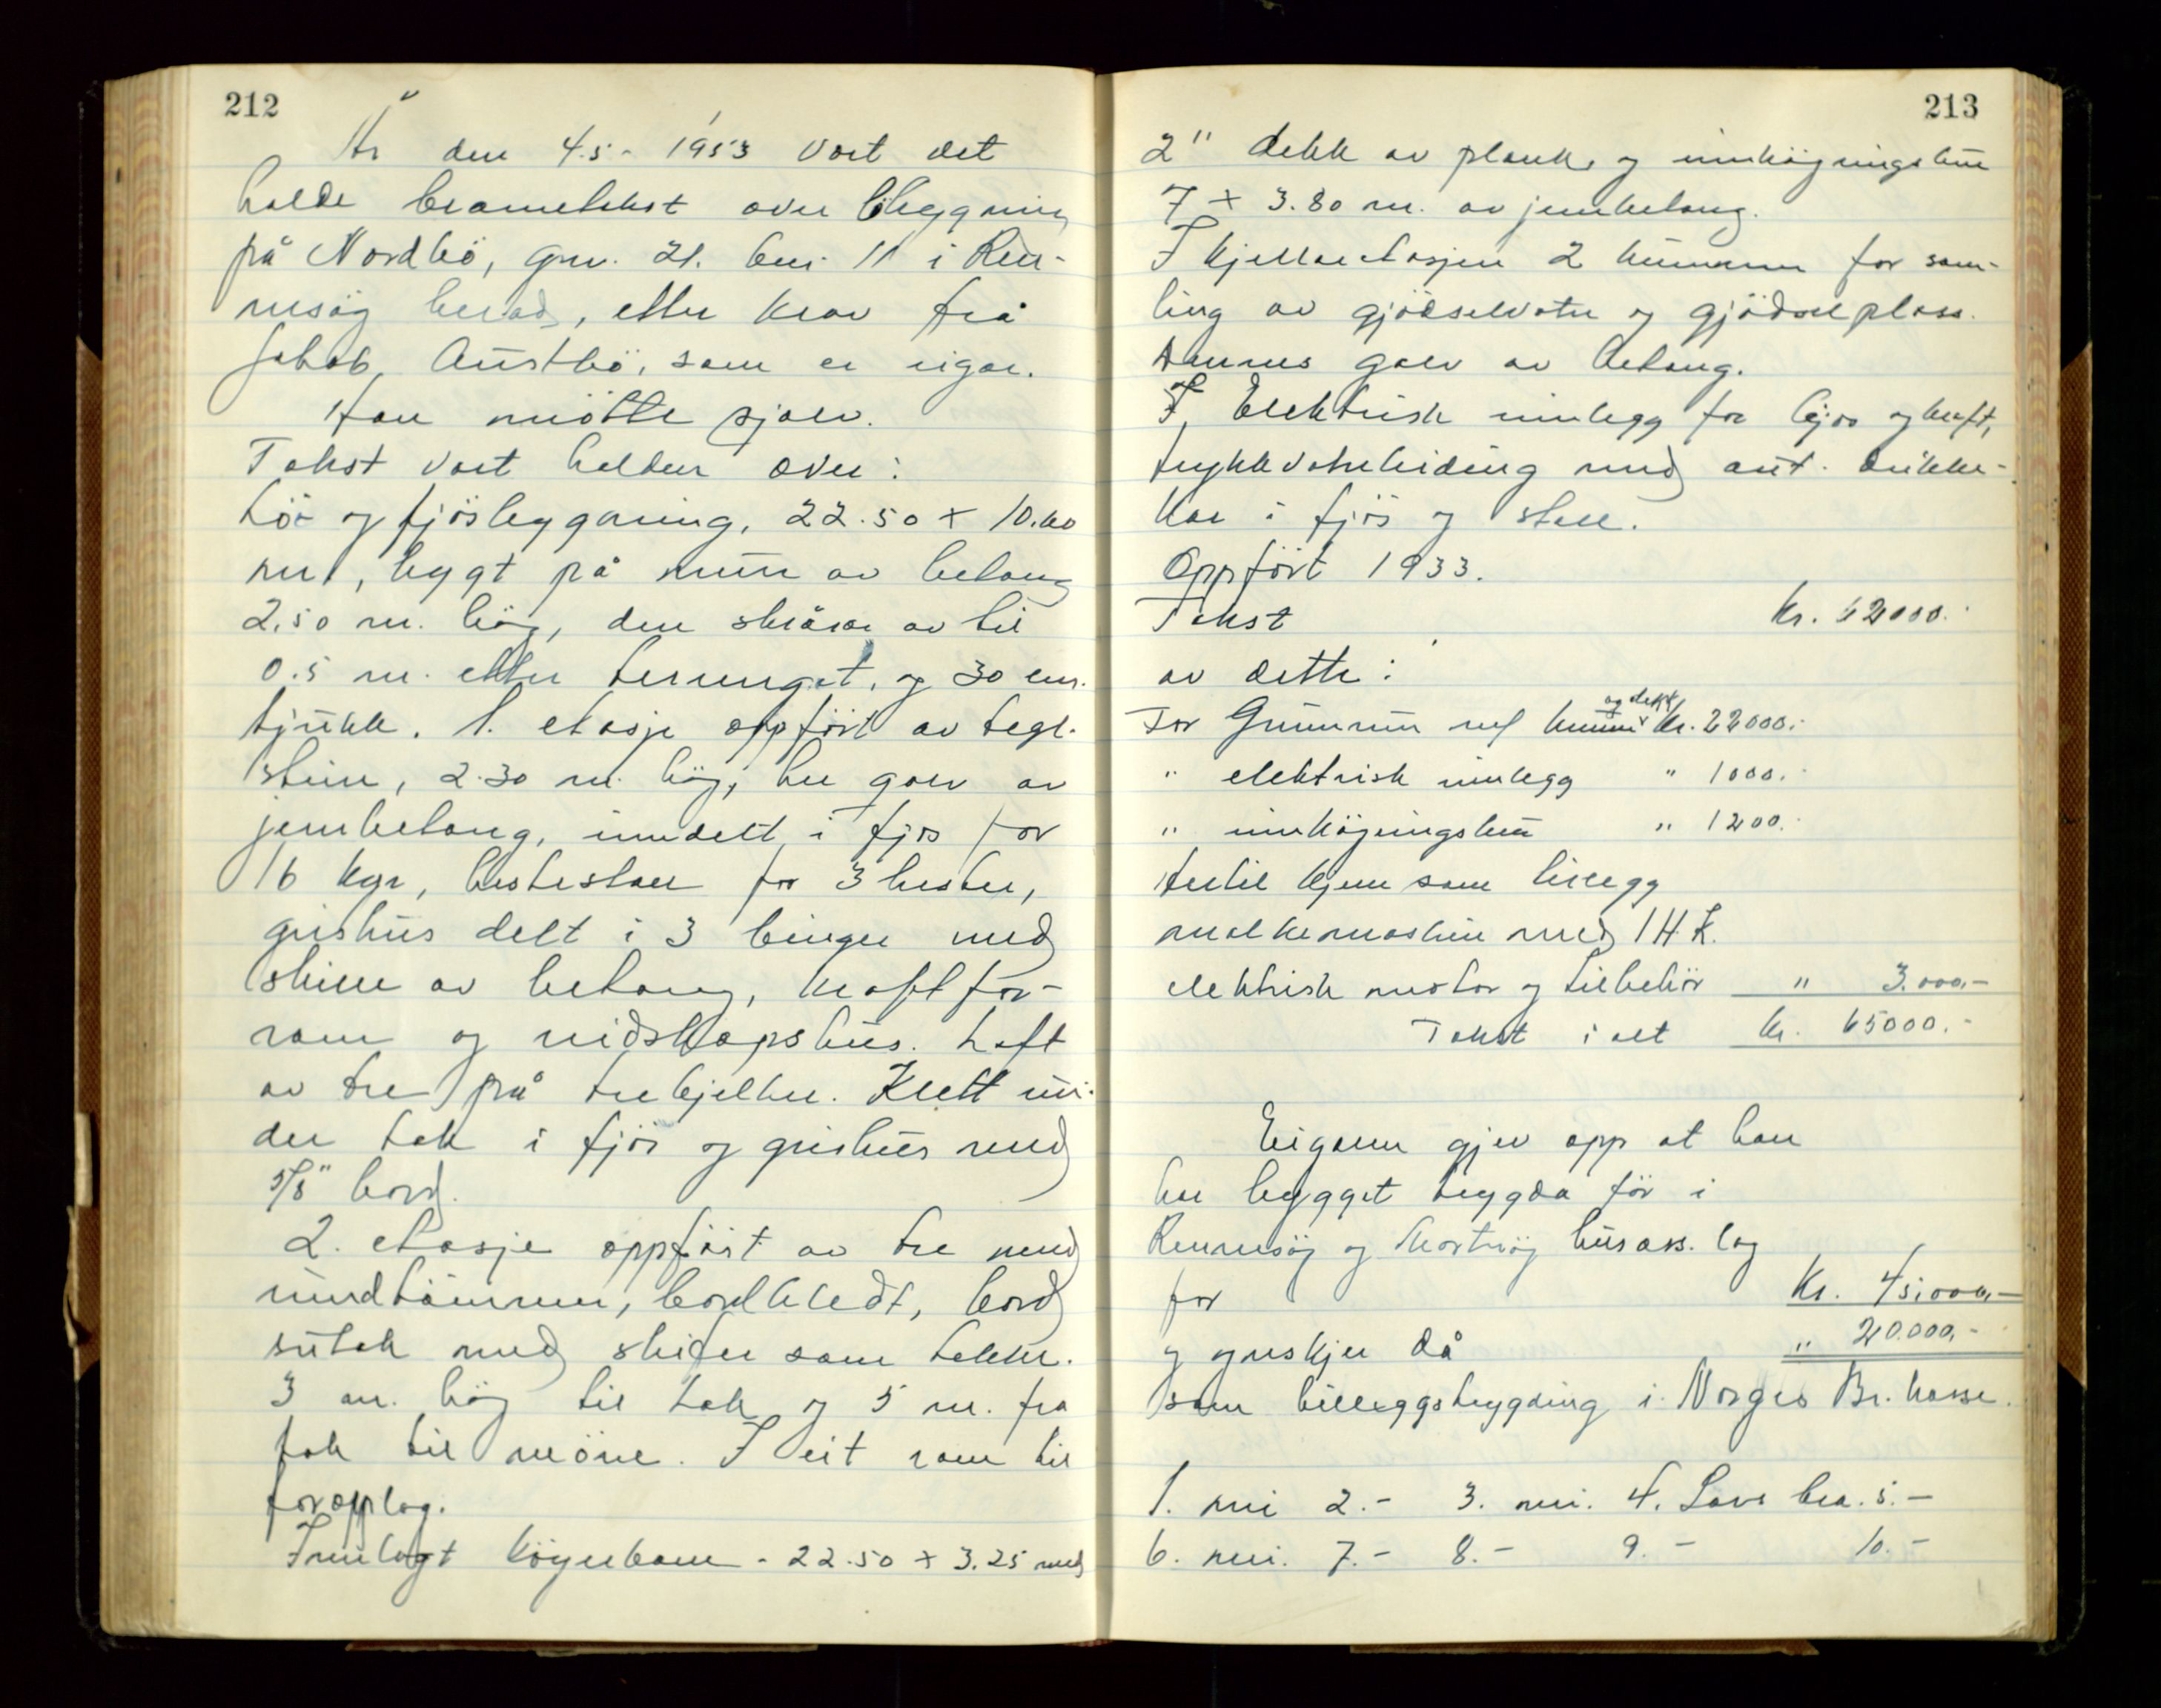 212
År den 4.5 - 1953 vart det
halde branntakst over bygning
på Nordbø, gnr. 21. bnr. 11 i Ren-
nesøy herad, etter krav frå
Jakob Austbø, som er eigar.
Han møtte sjølv.
Takst vart halden over:
Lø- og fjøsbygning, 22.50 x 10.60
m., bygt på mur av betong
2.50 m. høg, den skrårar av til
0.5 m. etter terrenget, og 30 cm.
tjukk. 1. etasje oppført av tegl-
stein, 2.30 m. høg, har golv av
jernbetong, inndelt i fjøs for
16 kyr, hestestall for 3 hestar,
grishus delt i 3 bingar med
skille av betong, kraftfor-
rom og reidskapshus. Loft
av tre på trebjelker. Kledt un-
der tak i fjøs og grishus med
5/8" bord.
2. etasje oppført av tre med
bordkledt, bord
sutak med skifer som tekke.
3 m. høg til tak og 5 m. fra
tak til møne. I eit rom til
foropplag.
Innlagt køyrebom - 22.50 x 3.25 med
213
2" dekk av plank, og innkøyringsbru
7 x 3.80 m. av jernbetong.
I kjellaretasjen 2 kummar for sam-
ling av gjødselvatn og gjødselplass.
Dennes golv av betong.
I, Elektrisk innlegg for ljos og kraft,
trykkvatnleiding med aut. drikke-
kar i fjøs og stall.
Oppført 1933.
Takst kr. 62000.-
av dette:
For Grunnmur m/ kummer og dekk kr. 22000.-
" elektrisk innlegg " 1000.-
" innkøyringsbru " 1200.-
Hertil kjem som tillegg
mølkemaskin med 1 H.K.
elektrisk motor og tilbehør " 3.000,-
Takst i alt kr. 65000.-
Eigaren gjev opp at han
har bygget trygda før i
Rennesøy og Mosterøy husass. lag
for Kr. 45.000,-
og ynskjer då " 20.000,-
som tilleggstrygding i Norges Br. kasse.
1. nei 2.- 3. nei. 4. Lars bra. 5.-
6. nei. 7.- 8.- 9.- 10.-